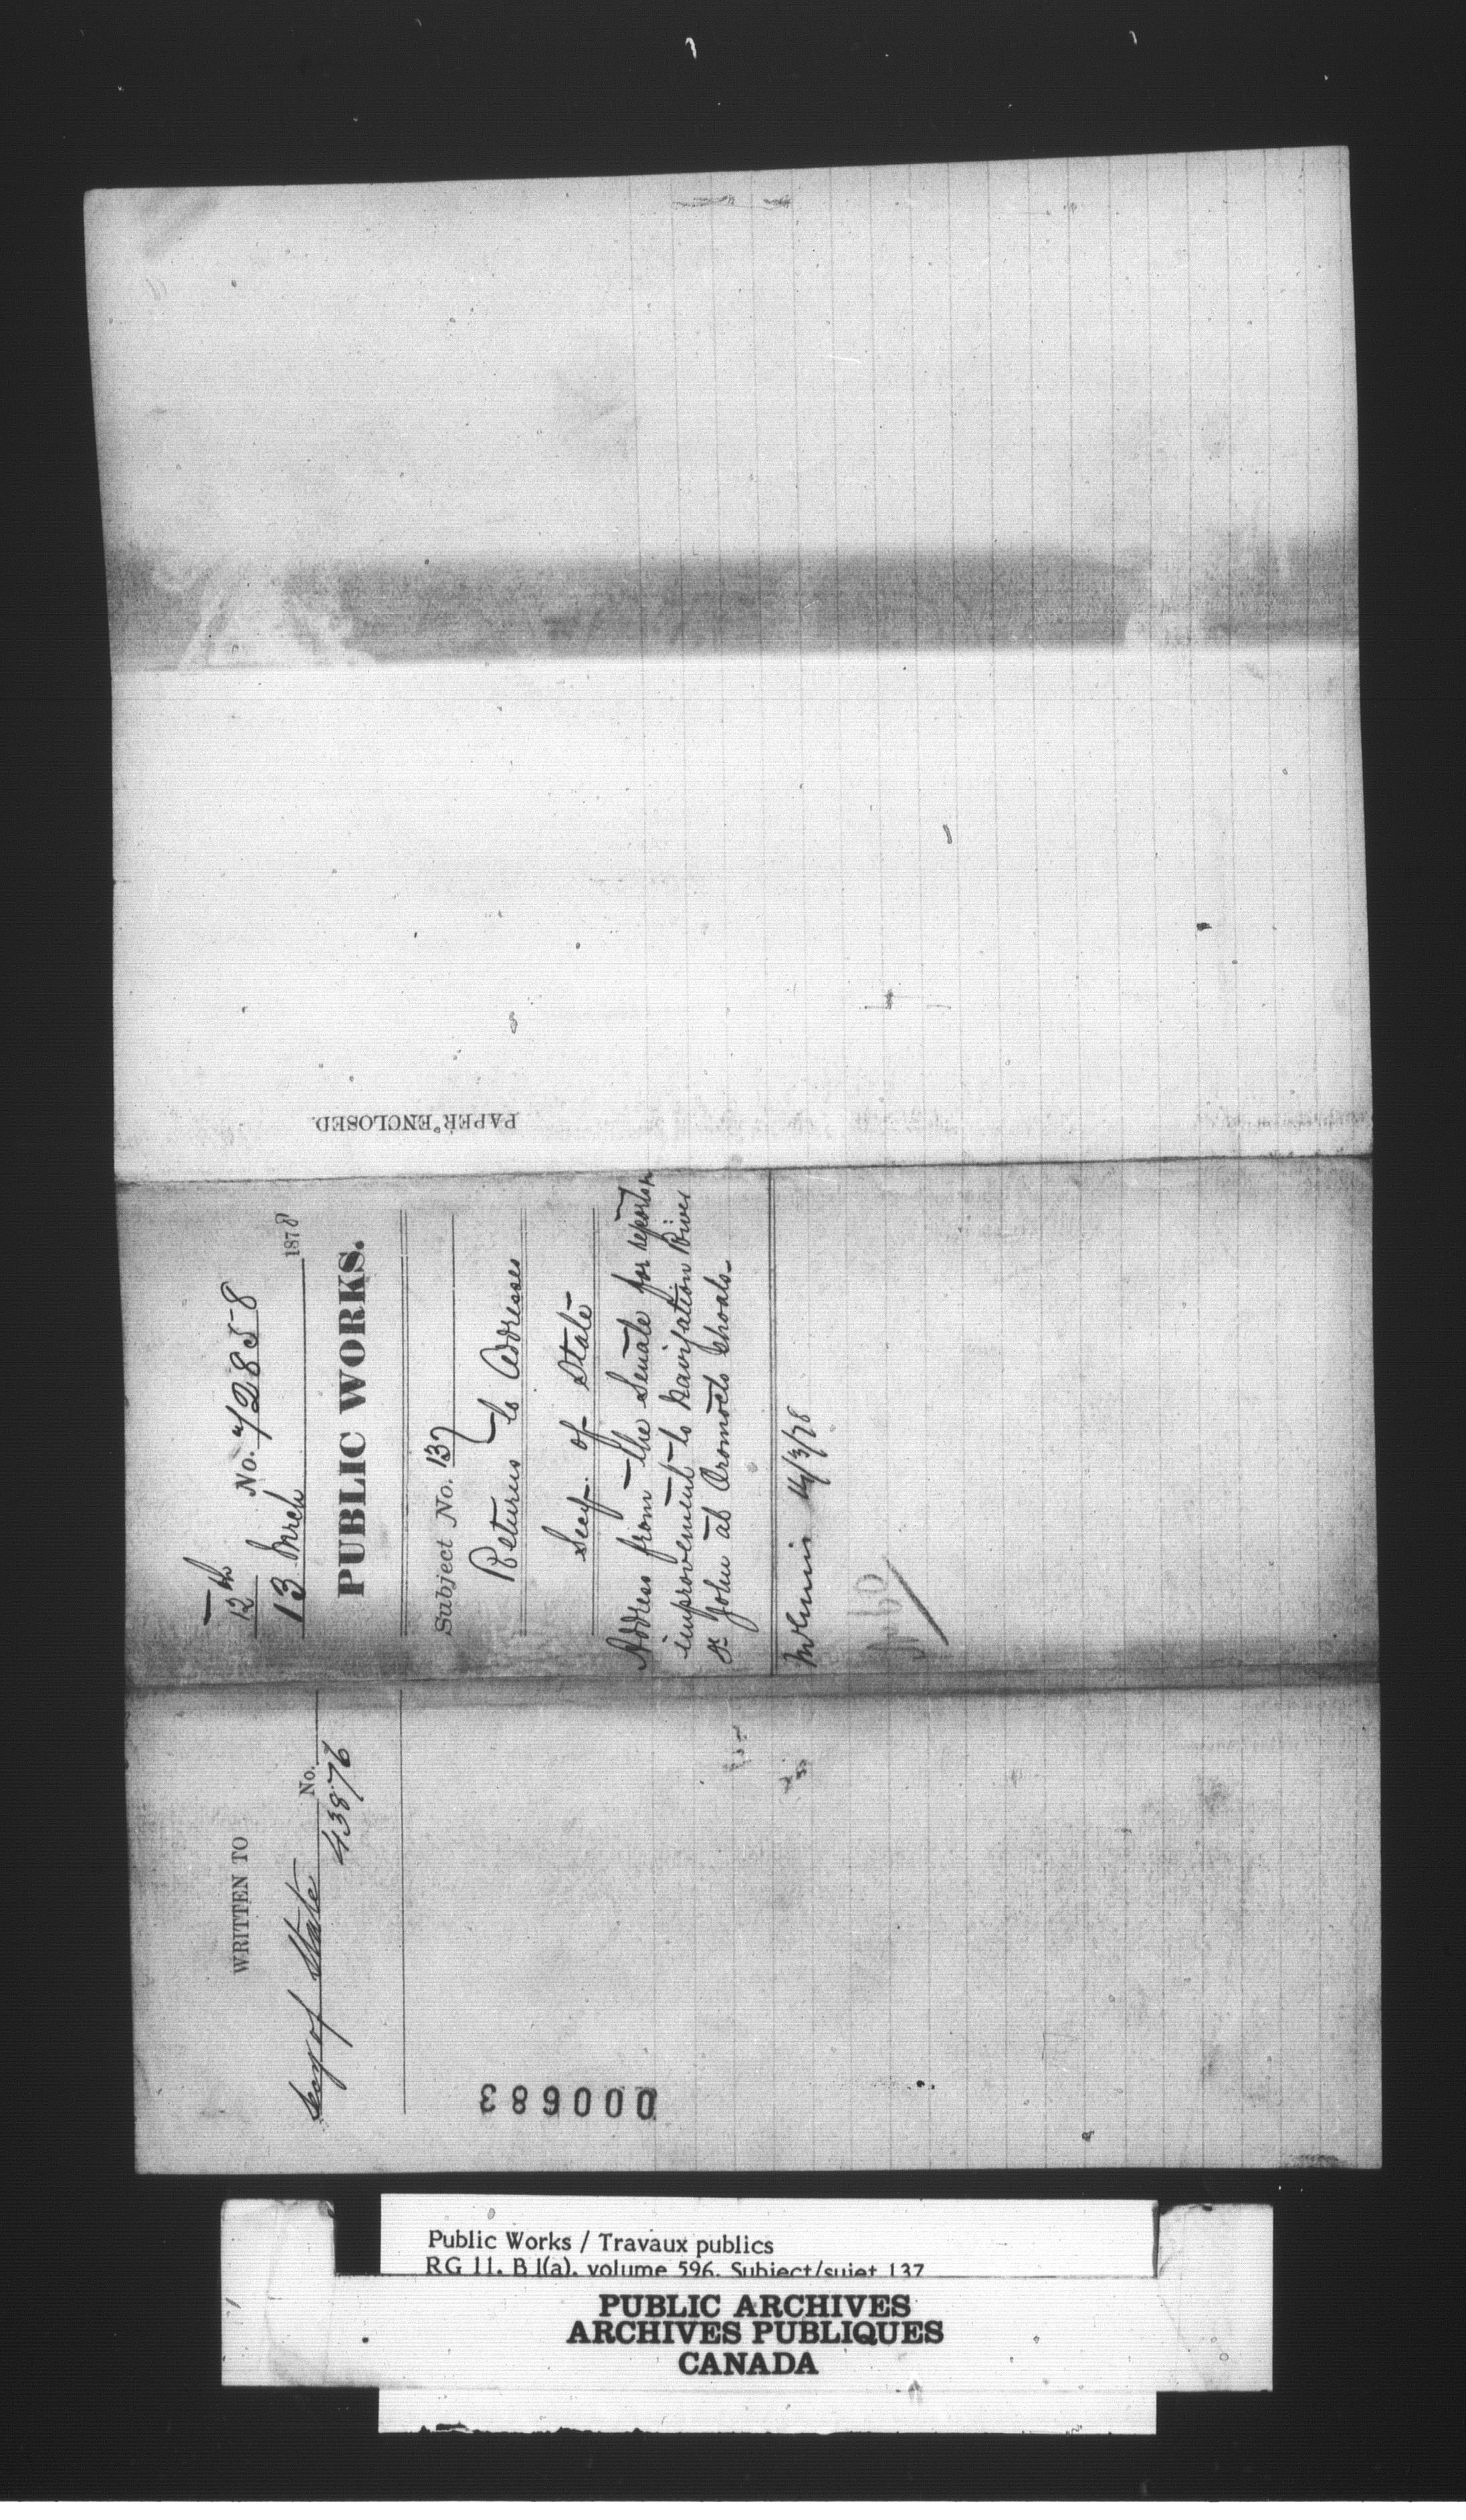 PAPER ENCLOSED.
12th
No. 72858
13 Mrch 1878
PUBLIC WORKS.
Subject No. 137
Returns to Addresses
Secy. of State
Address from the Senate for report on
improvement to Navigation River
St John at Oromocto Shoals.
14/3/78
WRITTEN TO
Secy of State No.
43876
000683
Public Works / Travaux publics
RG 11, B 1(a), volume 596, Subject/sujet 137
PUBLIC ARCHIVES
ARCHIVES PUBLIQUES
CANADA